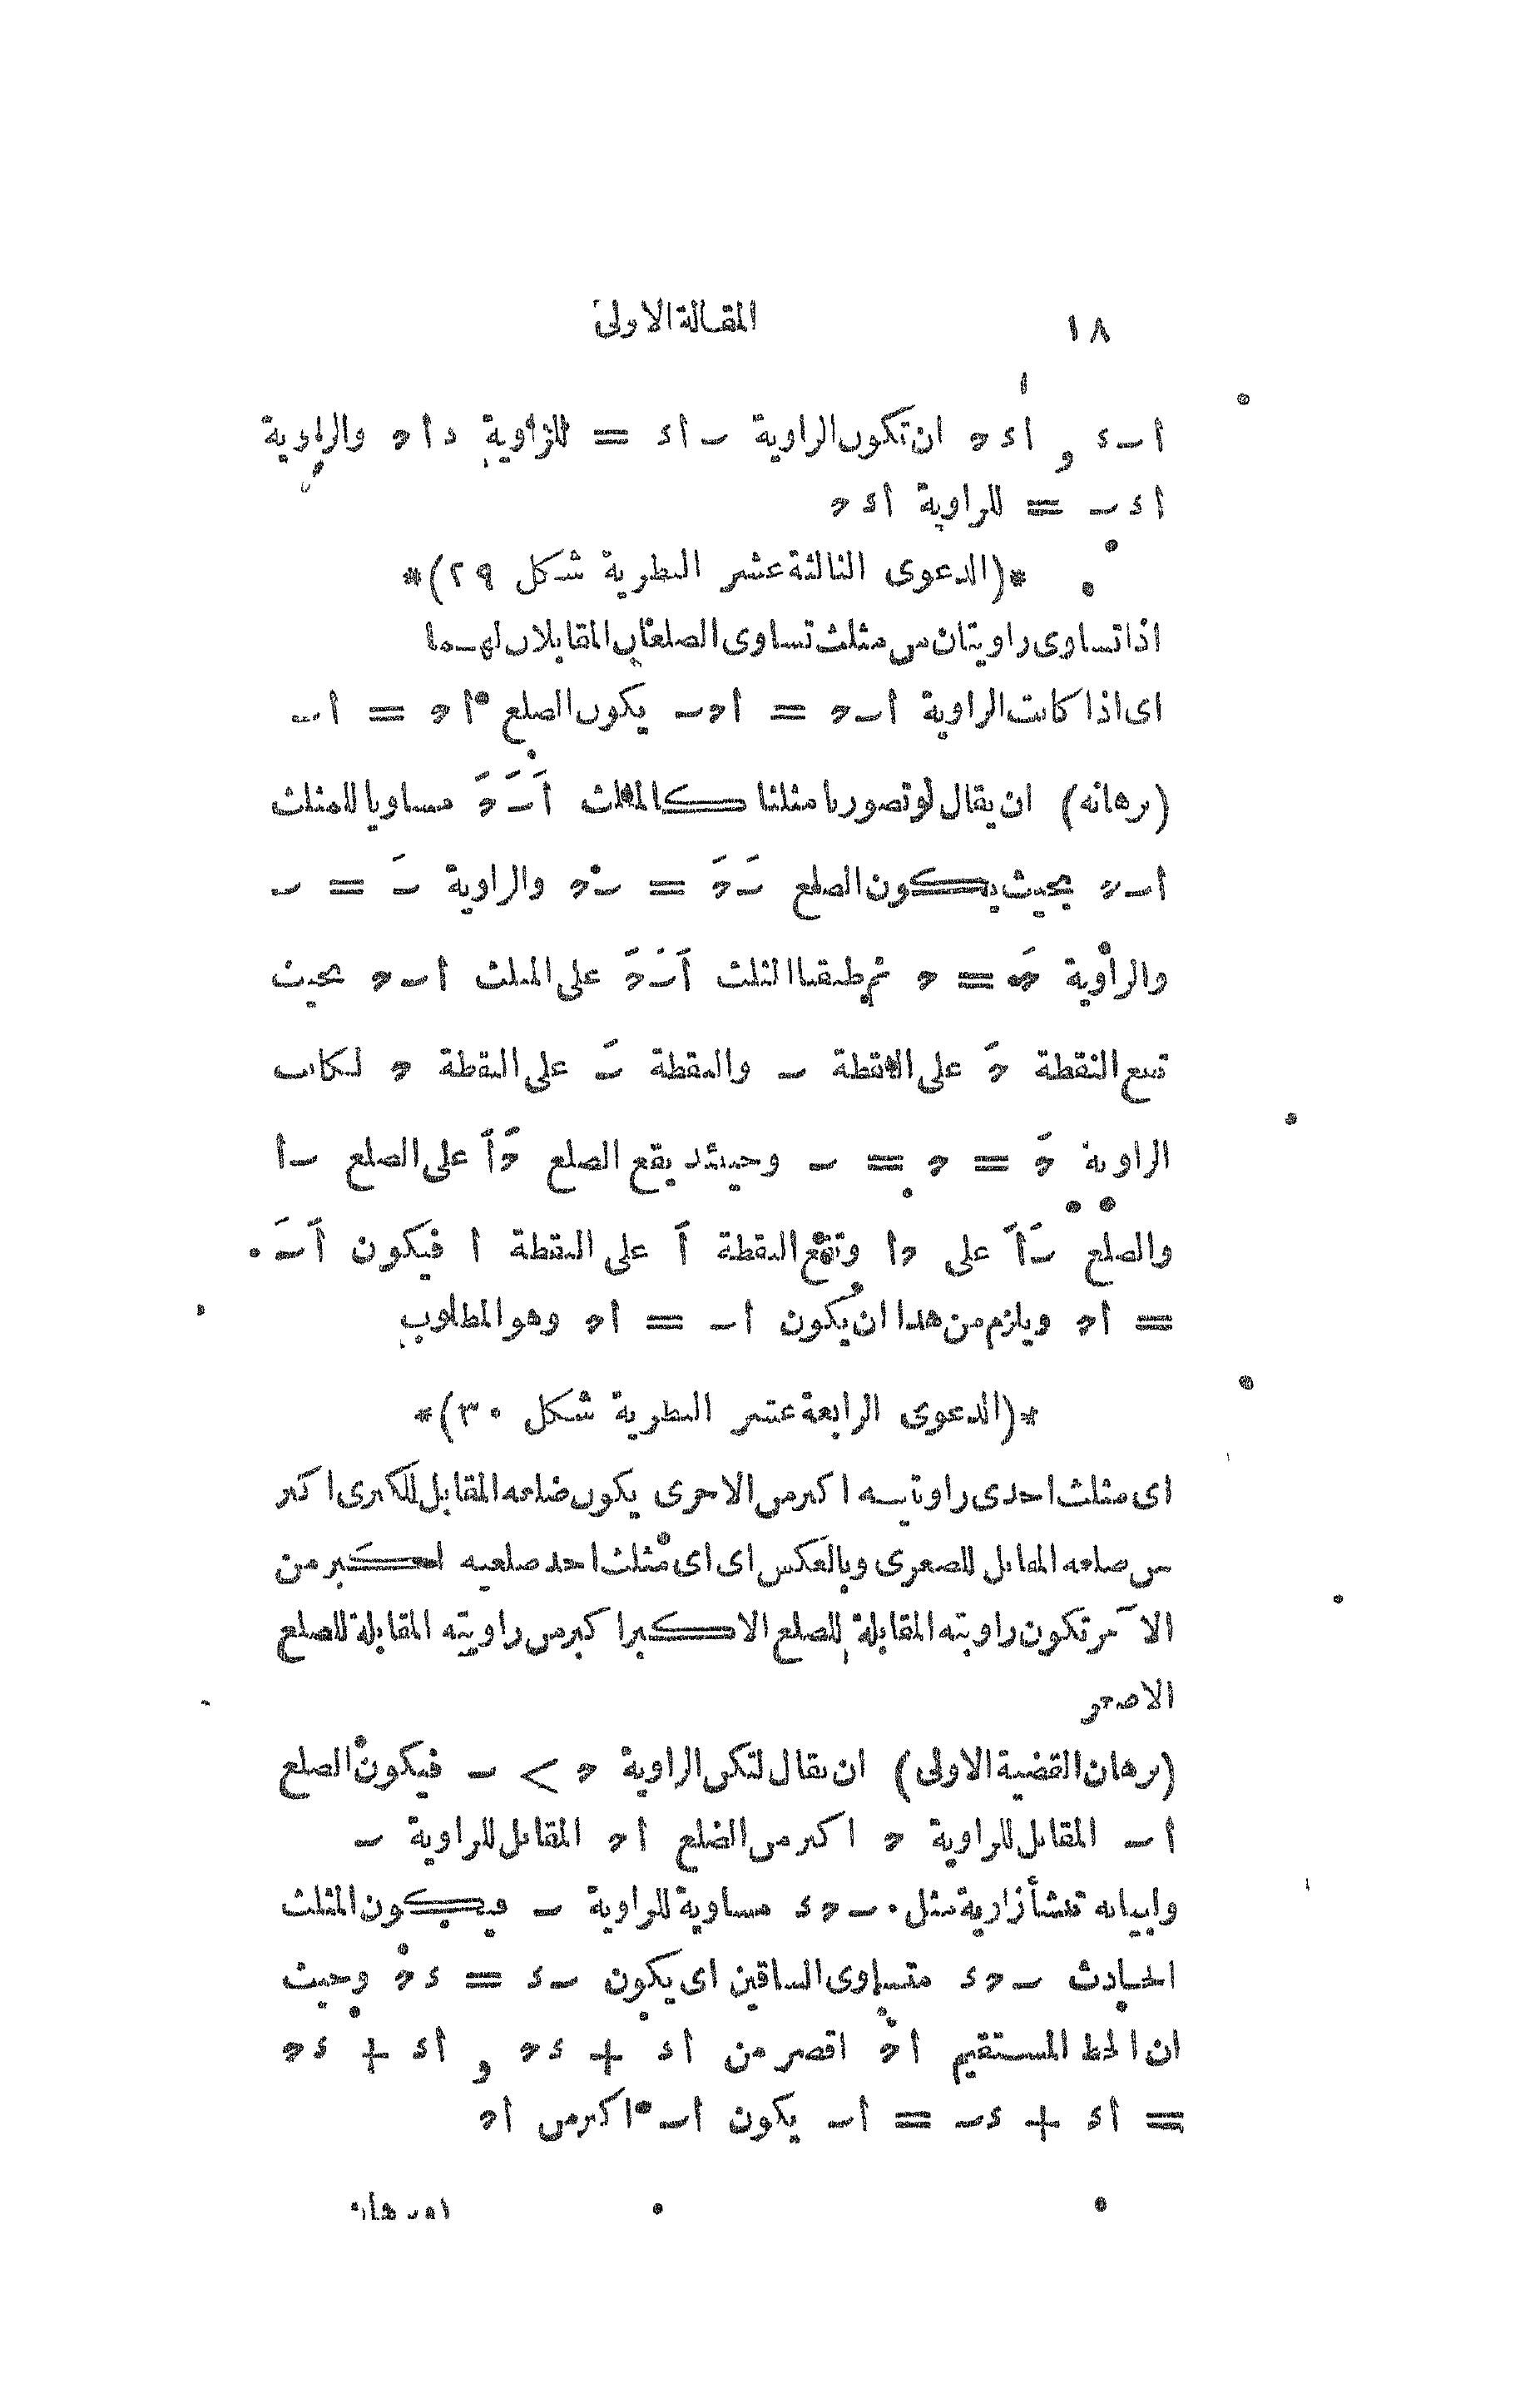 ١٨ المقالة الاولى
أ ب د و أ د ح ان تكون الزاوية ب أ د = للزاوية د أ ح والزاوية
أ د ب = للزاوية أ د ح
*(الدعوى الثالثة عشر النظرية شكل ٢٩)*
اذا تساوى زاويتان من مثلث تساوى الضلعان المقابلان لهما
اى اذا كانت الزاوية أ ب ح = أ ح ب يكون الضلع أ ح = أ ب
(برهانه) ان يقال لو تصورنا مثلثا كالمثلث أَ بَ حَ مساويا للمثلث
أ ب ح بحيث يكون الضلع بَ حَ = ب ح والزاوية بَ = ب
والزاوية حَ = ح ثم طبقنا المثلث أَ بَ حَ على المثلث أ ب ح بحيث
تقع النقطة حَ على النقطة ب والنقطة بَ على النقطة ح لكانت
الزاوية حَ = ح = ب وحينئذ يقع الضلع حَ أَ على الضلع ب أ
والضلع بَ أَ على ح أ وتقع النقطة أَ على النقطة ا فيكون أَ بَ
= أ ح ويلزم من هذا ان يكون أ ب = أ ح وهو المطلوب
*(الدعوى الرابعة عشر النظرية شكل ٣٠)*
اى مثلث احدى زاويتيه اكبر من الاخرى يكون ضلعه المقابل للكبرى اكبر
من ضلعه المقابل للصغرى وبالعكس اى اى مثلث احد ضلعيه اكبر من
الآخر تكون زاويته المقابلة للضلع الاكبر اكبر من زاويته المقابلة للضلع
الاصغر
(برهان القضية الاولى) ان يقال لتكن الزاوية ح > ب فيكون الضلع
أ ب المقابل للزاوية ح اكبر من الضلع أ ح المقابل للزاوية ب
ولبيانه تنشأ زاوية مثل ب ح د مساوية للزاوية ب فيكون المثلث
الحادث ب ح د متساوى الساقين اى يكون ب د = د ح وحيث
ان الخط المستقيم أ ح اقصر من أ د + د ح و أ د + د ح
= أ د + د ب = أ ب يكون أ ب اكبر من أ ح